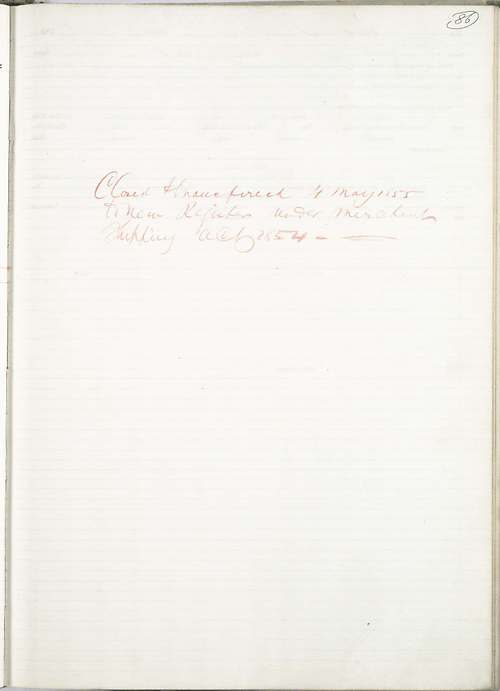 86
Closed & transferred 4 May 1855
to New Register under Merchant
Shipping Act 1854 -